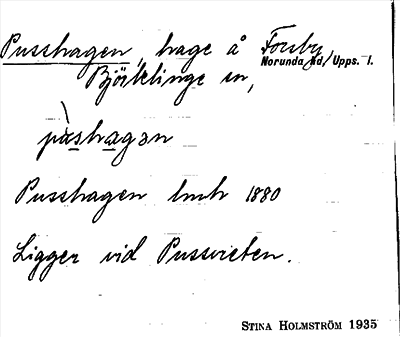 Pusshagen, hage å Forsby,
Björklinge sn, Norunda hd, Upps. l.
pùshagən
Pusshagen lmh 1880
Ligger vid Pussvreten.
STINA HOLMSTRÖM 1935